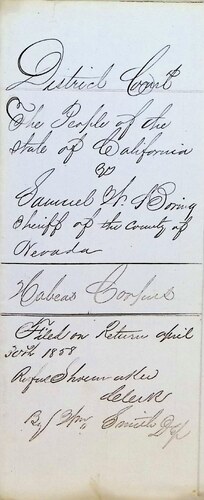 District Court
The People of the
State of California
vs
Samuel W. Boring
Sheriff of the County of
Nevada
Habeas Corpus
Filed on Return April
30th 1858
Rufus Shoemaker
Clerk
By Wm. Smith Dpy